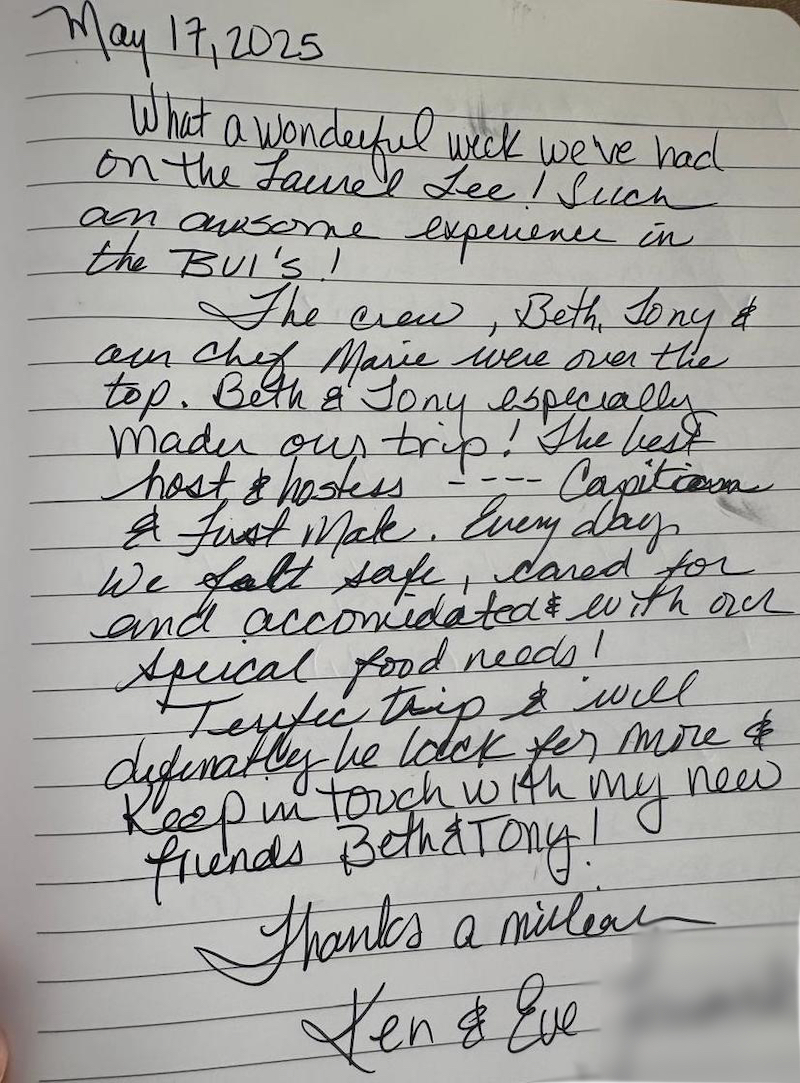 May 17, 2025
What a wonderful week we've had
on the Laurel Lee! Such
an awesome experience in
the BVI's!
The crew, Beth, Tony &
our chef Marie were over the
top. Beth & Tony especially
made our trip! The best
host & hostess ---- Capitian
& First Mate. Every day
we falt safe, cared for
and accomidated & with our
spical food needs!
Terrfic trip & will
difinatley be back for more &
Keep in touch with my new
friends Beth & Tony!
Thanks a million
Ken & Eve